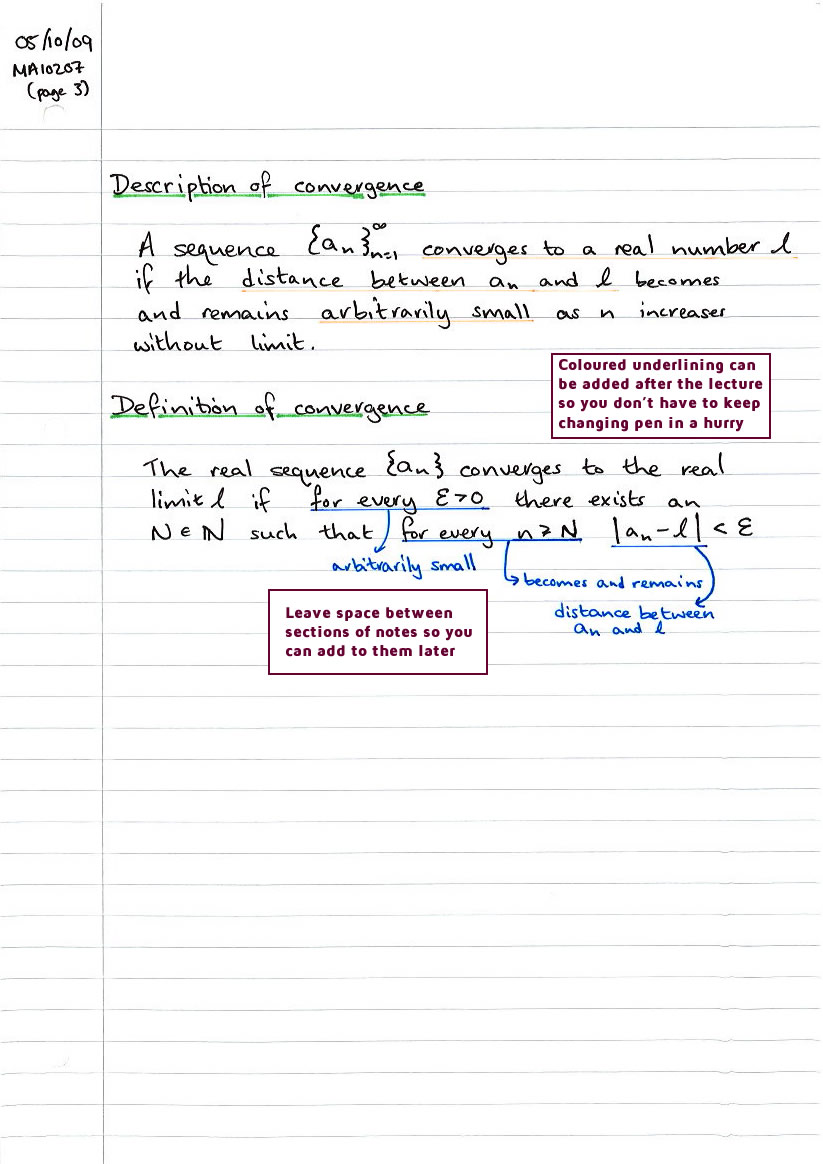 05/10/09
MA10207
(page 3)
Description of convergence
A sequence {aₙ}ₙ₌₁^∞ converges to a real number l
if the distance between aₙ and l becomes
and remains arbitrarily small as n increases
without limit.
Coloured underlining can
be added after the lecture
so you don't have to keep
changing pen in a hurry
Definition of convergence
The real sequence {aₙ} converges to the real
limit l if for every ε>0 there exists an
N ∈ ℕ such that for every n ⩾ N |aₙ - l| < ε
arbitrarily small
becomes and remains
distance between
aₙ and l
Leave space between
sections of notes so you
can add to them later